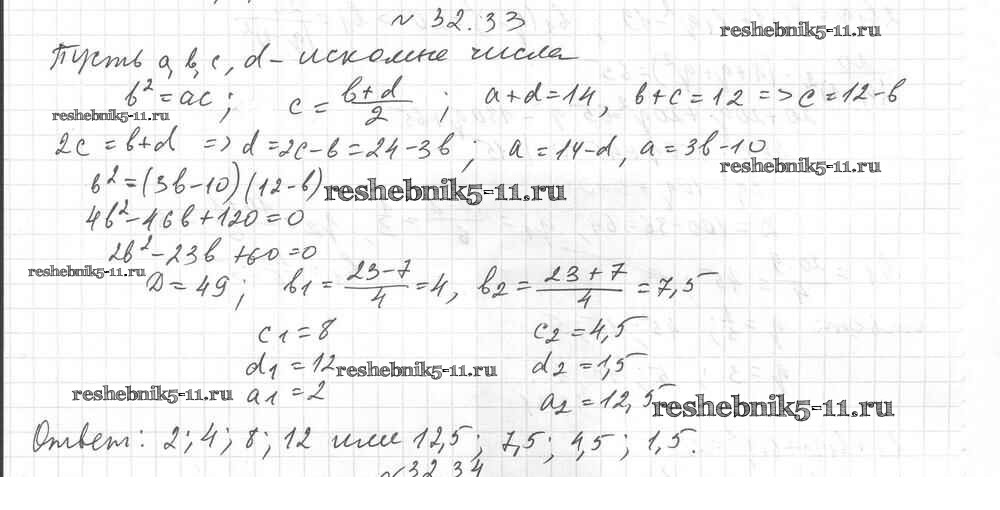 № 32.33
reshebnik5-11.ru
Пусть a, b, c, d – искомые числа
b² = ac ; c = (b+d)/2 ; a+d=14, b+c=12 => c=12-b
reshebnik5-11.ru
2c = b+d => d=2c-b=24-3b ; a=14-d, a=3b-10
reshebnik5-11.ru
b²=(3b-10)(12-b)
reshebnik5-11.ru
4b²-46b+120=0
2b²-23b+60=0
reshebnik5-11.ru
D=49; b1=(23-7)/4=4, b2=(23+7)/4=7,5
c1=8 c2=4,5
d1=12 d2=1,5
reshebnik5-11.ru
a1=2 a2=12,5
reshebnik5-11.ru reshebnik5-11.ru
Ответ: 2; 4; 8; 12 или 12,5; 7,5; 4,5; 1,5.
№ 32.34